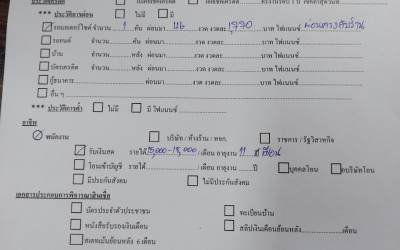 *** ประวัติการผ่อน ไม่มี มี
รถมอเตอร์ไซค์ จำนวน 1 คัน ผ่อนมา 46 งวด งวดละ 1,990 บาท ไฟแนนซ์
รถยนต์ จำนวน คัน ผ่อนมา งวด งวดละ บาท ไฟแนนซ์
บ้าน จำนวน หลัง ผ่อนมา งวด งวดละ บาท ไฟแนนซ์
บัตรเครดิต จำนวน ผ่อนมา งวด งวดละ บาท ไฟแนนซ์
กู้ธนาคาร ผ่อนมา งวด งวดละ บาท ไฟแนนซ์
อื่น ๆ
*** ประวัติการค้ำ ไม่มี มี ไฟแนนซ์
อาชีพ
พนักงาน บริษัท / ห้างร้าน / หจก. ราชการ / รัฐวิสาหกิจ
รับเงินสด รายได้ 15,000-18,000 /เดือน อายุงาน 11 ปี
โอนเข้าบัญชี รายได้ /เดือน อายุงาน ปี บุคคลโอน บริษัทโอน
มีประกันสังคม ไม่มีประกันสังคม
เอกสารประกอบการพิจารณาสินเชื่อ
บัตรประจำตัวประชาชน ทะเบียนบ้าน
หนังสือรับรองเงินเดือน สลิปเงินเดือนย้อนหลัง เดือน
สเตทเม้นย้อนหลัง 6 เดือน